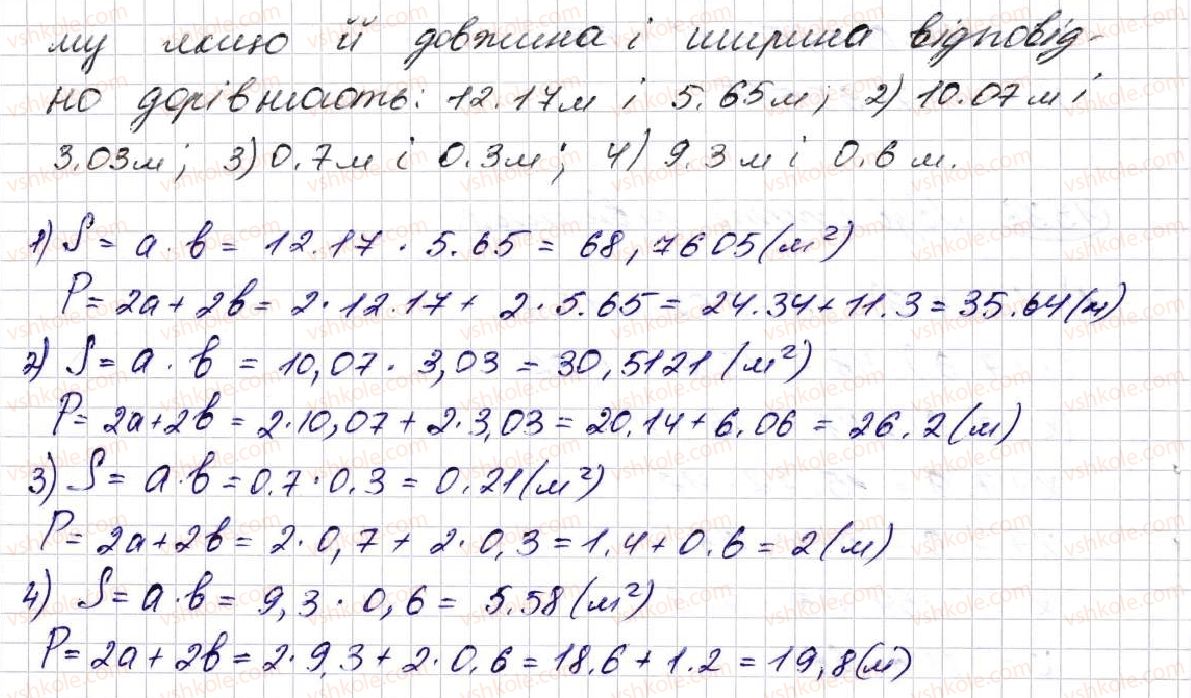 му якщо її довжина і ширина відповід-
но дорівнюють: 12.17м і 5.65м; 2) 10.07м і
3.03м; 3) 0.7м і 0.3м; 4) 9.3м і 0.6м.
1) S = a · b = 12.17 · 5.65 = 68,7605(м²)
P = 2a + 2b = 2 · 12.17 + 2 · 5.65 = 24.34 + 11.3 = 35.64(м)
2) S = a · b = 10,07 · 3,03 = 30,5121 (м²)
P = 2a + 2b = 2 · 10,07 + 2 · 3,03 = 20.14 + 6.06 = 26.2(м)
3) S = a · b = 0.7 · 0.3 = 0.21(м²)
P = 2a + 2b = 2 · 0,7 + 2 · 0,3 = 1.4 + 0.6 = 2(м)
4) S = a · b = 9,3 · 0,6 = 5.58(м²)
P = 2a + 2b = 2 · 9,3 + 2 · 0.6 = 18.6 + 1.2 = 19,8(м)
vshkole.com